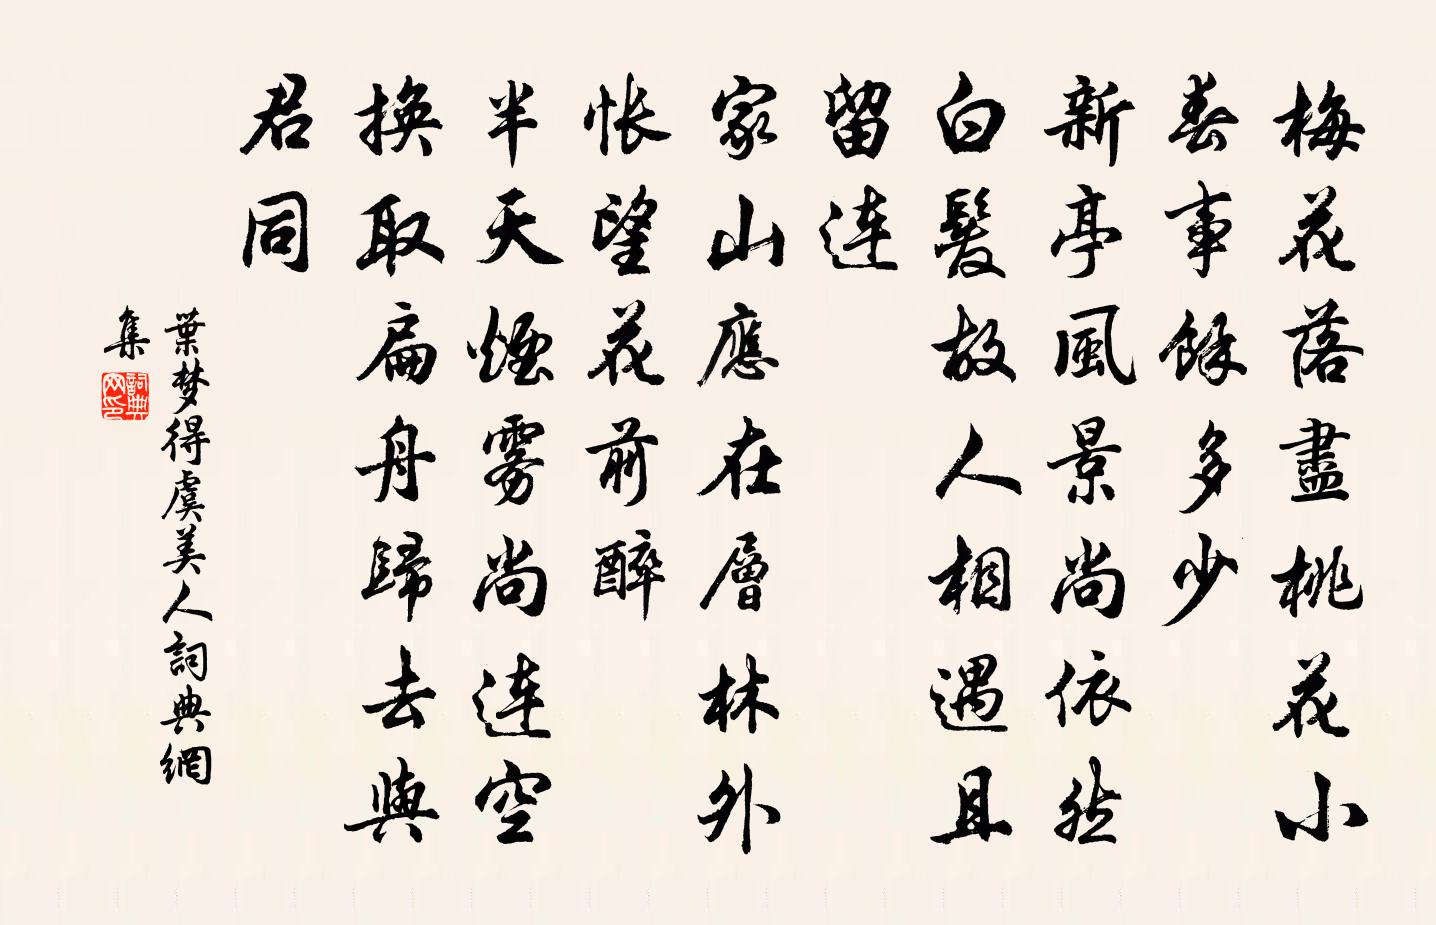 梅花落盡桃花小
春事餘多少
新亭風景尚依然
白髮故人相遇且
留連
家山應在層林外
悵望花前醉
半天煙雾尚連空
換取扁舟歸去與
君同
葉梦得虞美人詞典網
集
詞典
网印